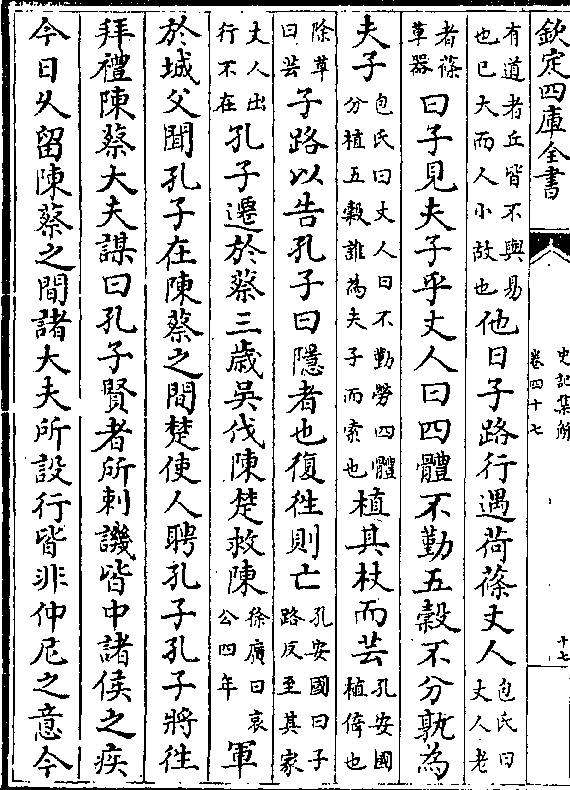 欽定四庫全書 史記集解 卷四十七 十七
有道者丘皆不與易也已大而人小故也他日子路行遇荷蓧丈人包氏曰丈人老
者蓧草器曰子見夫子乎丈人曰四體不勤五穀不分孰為
夫子包氏曰丈人曰不勤勞四體分植五穀誰為夫子而索也植其杖而芸孔安國植倚也
除草曰芸子路以告孔子曰隱者也復徃則亡孔安國曰子路反至其家
丈人出行不在孔子遷於蔡三歲吳伐陳楚救陳徐廣曰哀公四年軍
於城父聞孔子在陳蔡之間楚使人聘孔子孔子將徃
拜禮陳蔡大夫謀曰孔子賢者所刺譏皆中諸侯之疾
今日久留陳蔡之間諸大夫所設行皆非仲尼之意今